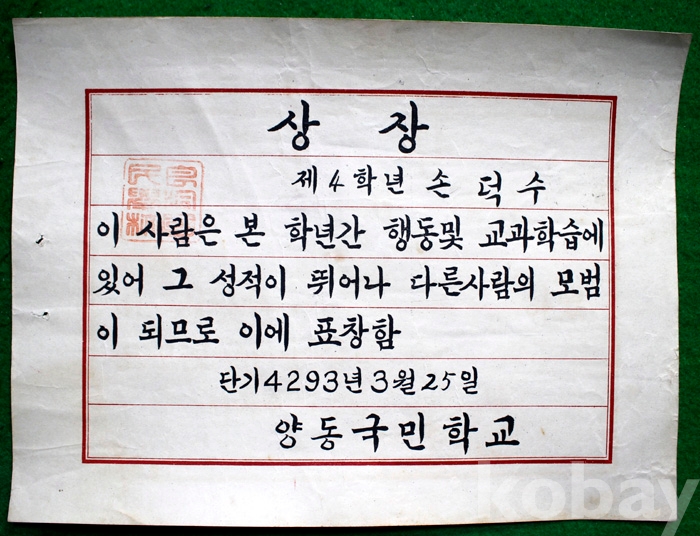 상 장
제4학년 손 덕 수
이 사람은 본 학년간 행동및 교과학습에
있어 그 성적이 뛰어나 다른사람의 모범
이 되므로 이에 표창함
단기4293년 3월 25일
양동국민학교
kobay